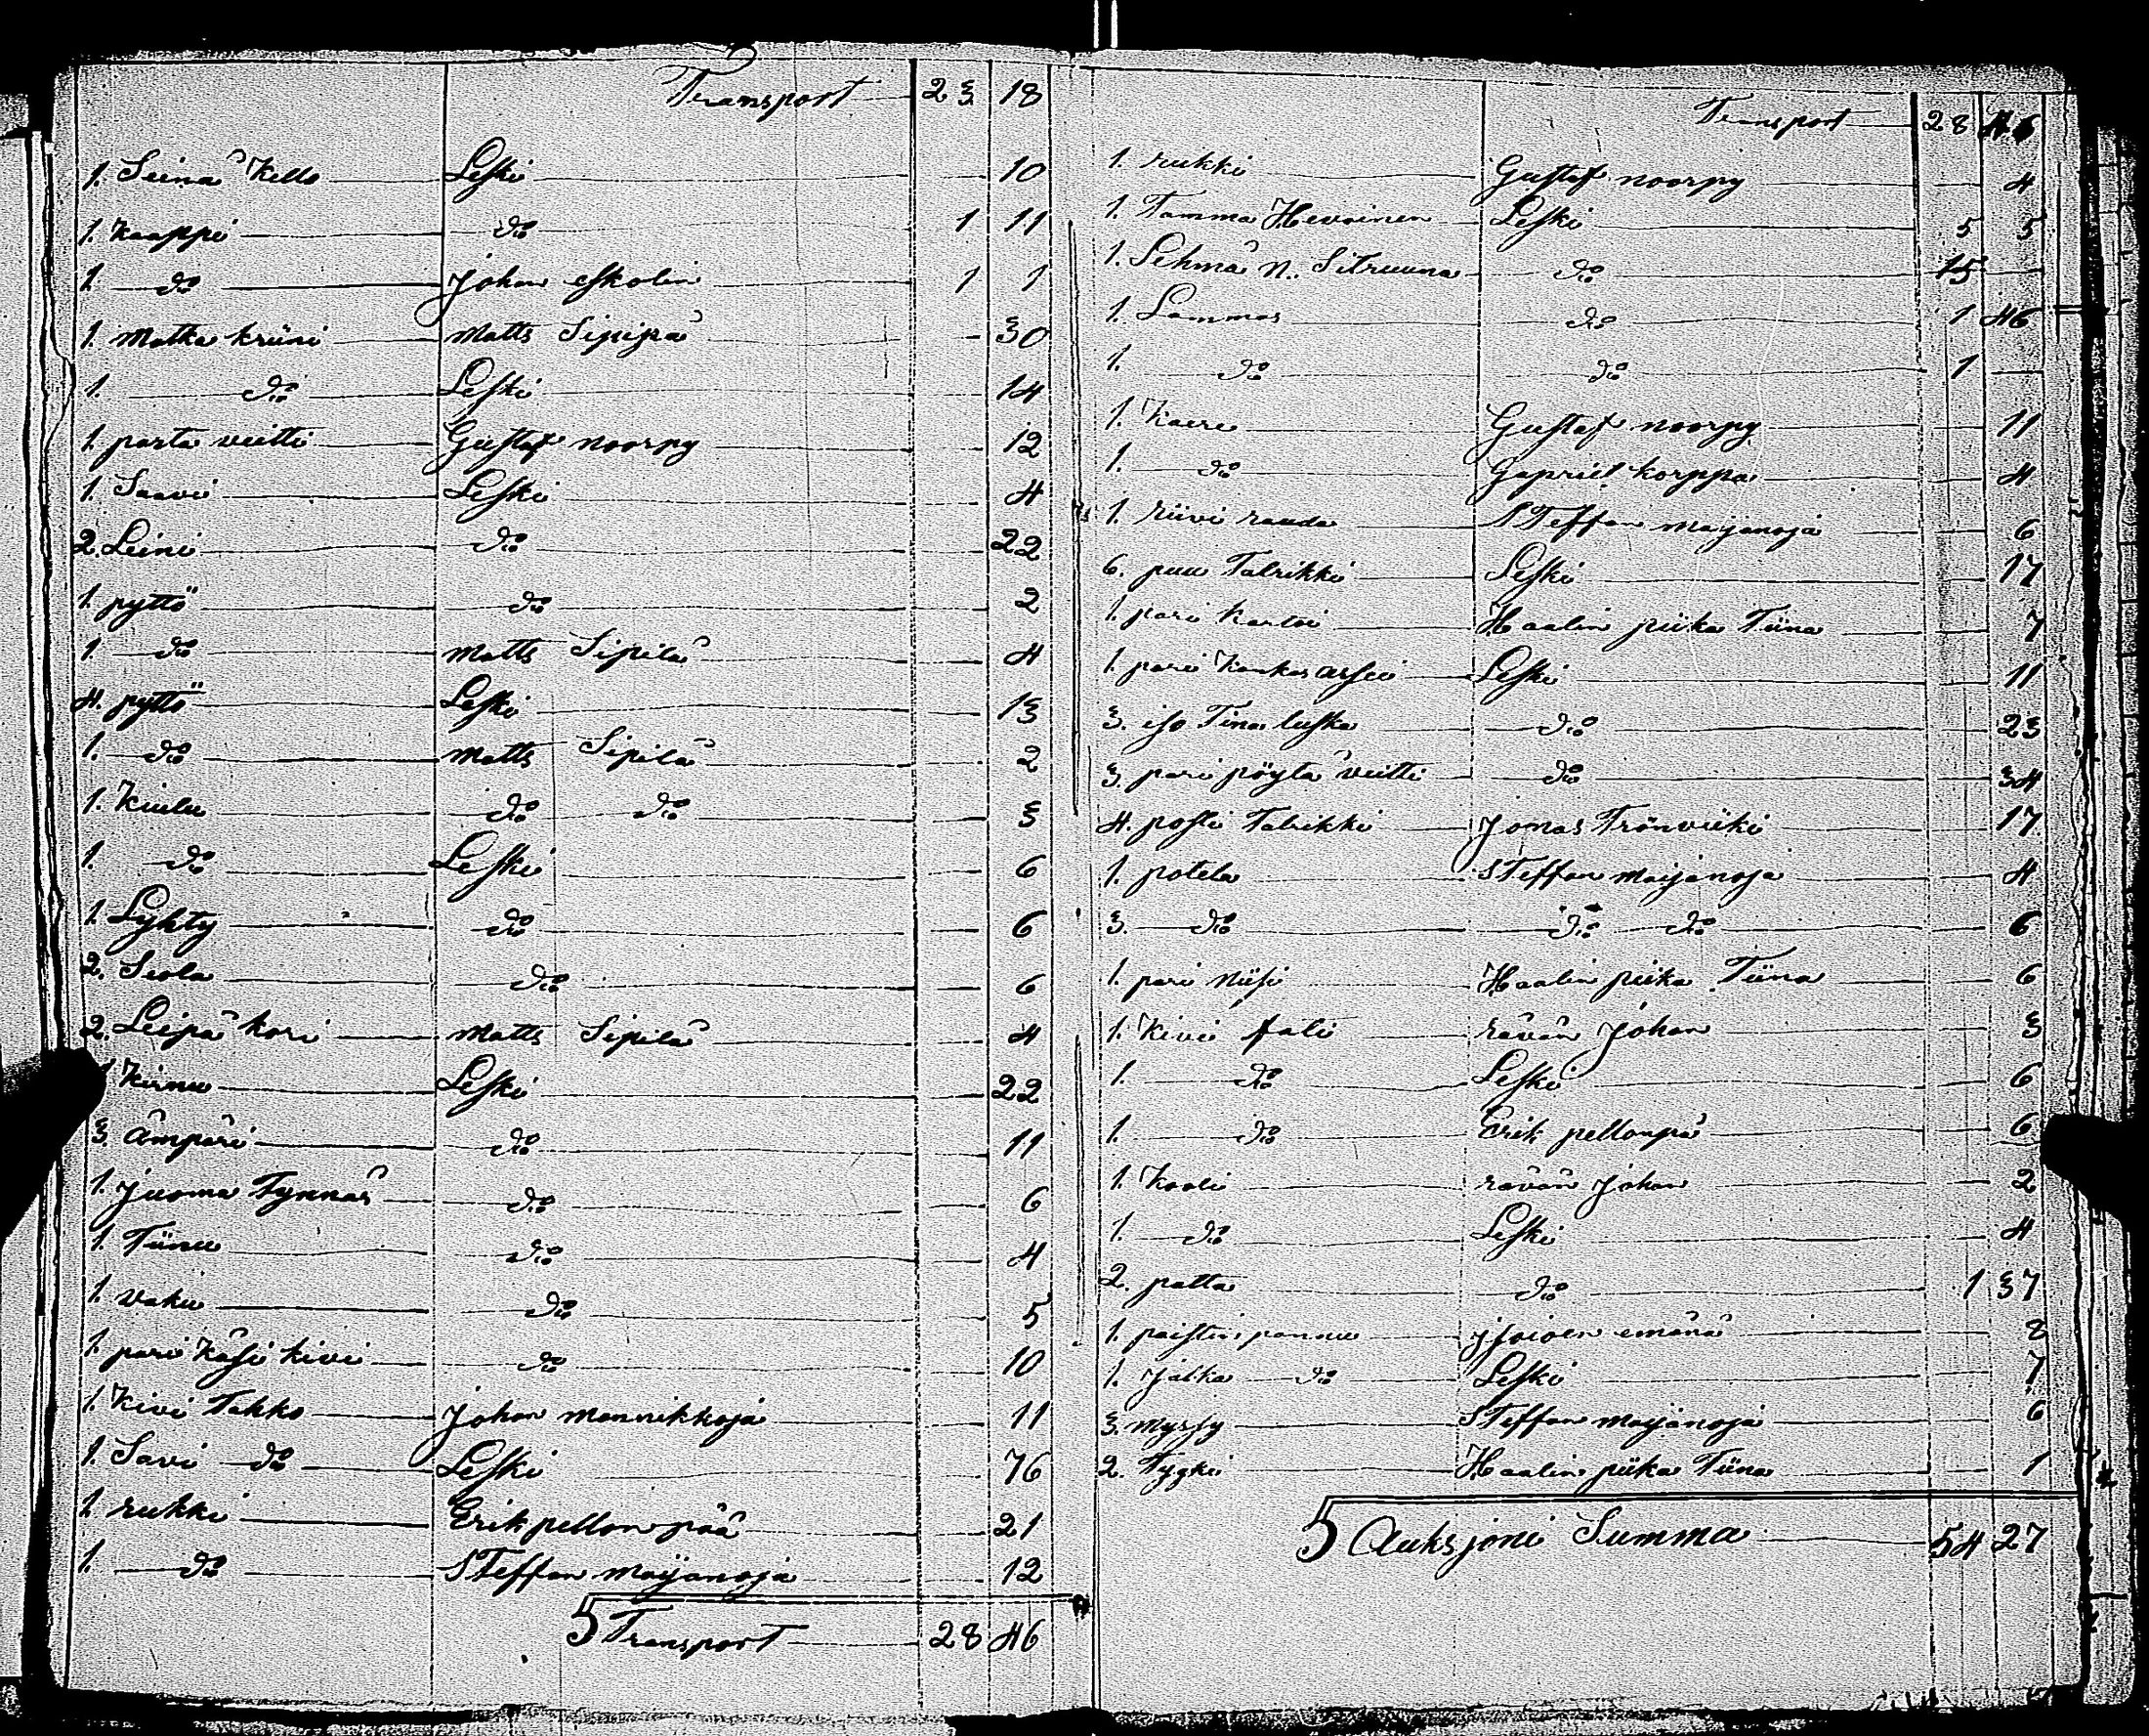 Transport 23 18
1. Seinä Kello Leski 10
1. Kaappi do 1 11
1. do Johan Eskolin 1 1
1. Matka kriini Matts Sipipä 30
1. do Leski 14
1. parta veitti Gustaf noorpy 12
1. Saavi Leski 4
2. Leini do 22
1. pyttö do 2
1. do Matts Sipilä 4
4. pyttö Leski 13
1. do Matts Sipilä 2
1. Kiulu do do 3
1. do Leski 6
1. Lyhty do 6
2. Seola do 6
2. Leipä kori Matts Sipilä 4
1. Kirnu Leski 22
3. Ämpäri do 11
1. Juoma Tynnäs do 6
1. Tiinu do 4
1. vaku do 5
1. pari Käsi kivi do 10
1. Kivi Takko Johan mannikkoja 11
1. Savi do Leski 76
1. rukki Erik pellon pää 21
1. do Steffan maijanoja 12
5 Transport 28 46
Transport 28 46
1. rukki Gustaf noorpy 4
1. Tamma Hevoinen Leski 5 5
1. Lehmä n. Sitruuna do 15
1. Lammas do 1 46
1. do do 1
1. Kaere Gustaf noorpy 11
1. do Gapriel korppa 4
1. riivi rauda Steffan maijanoja 6
6. puu Talrikki Leski 17
1. pari kartoi Haalin piika Tiina 7
1. pari Kankas assei Leski 11
3. iso Tina luska do 23
3. pari pöytä veitti do 34
4. posli Talrikki Jonas Trönviiki 17
1. potela Steffan maijanoja 4
3. do do do 6
1. pari Niisi Haalin piika Tiina 6
1. Kivi fati rävän Johan 3
1. do Leski 6
1. do Erik pellonpä 6
1. Kooli rävän Johan 2
1. do Leski 4
2. patta do 1 37
1. paistin pannu emänä 8
1. Jalka do Leski 7
3. myssy Steffan maijanoja 6
2. Tygki Haalin piika Tiina 1
5 Auksjoni Summa 54 27